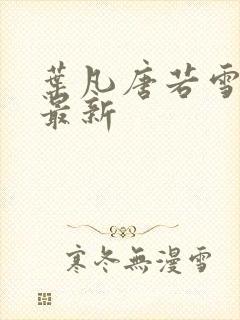 葉凡唐若雪
最新
寒冬無漫雪